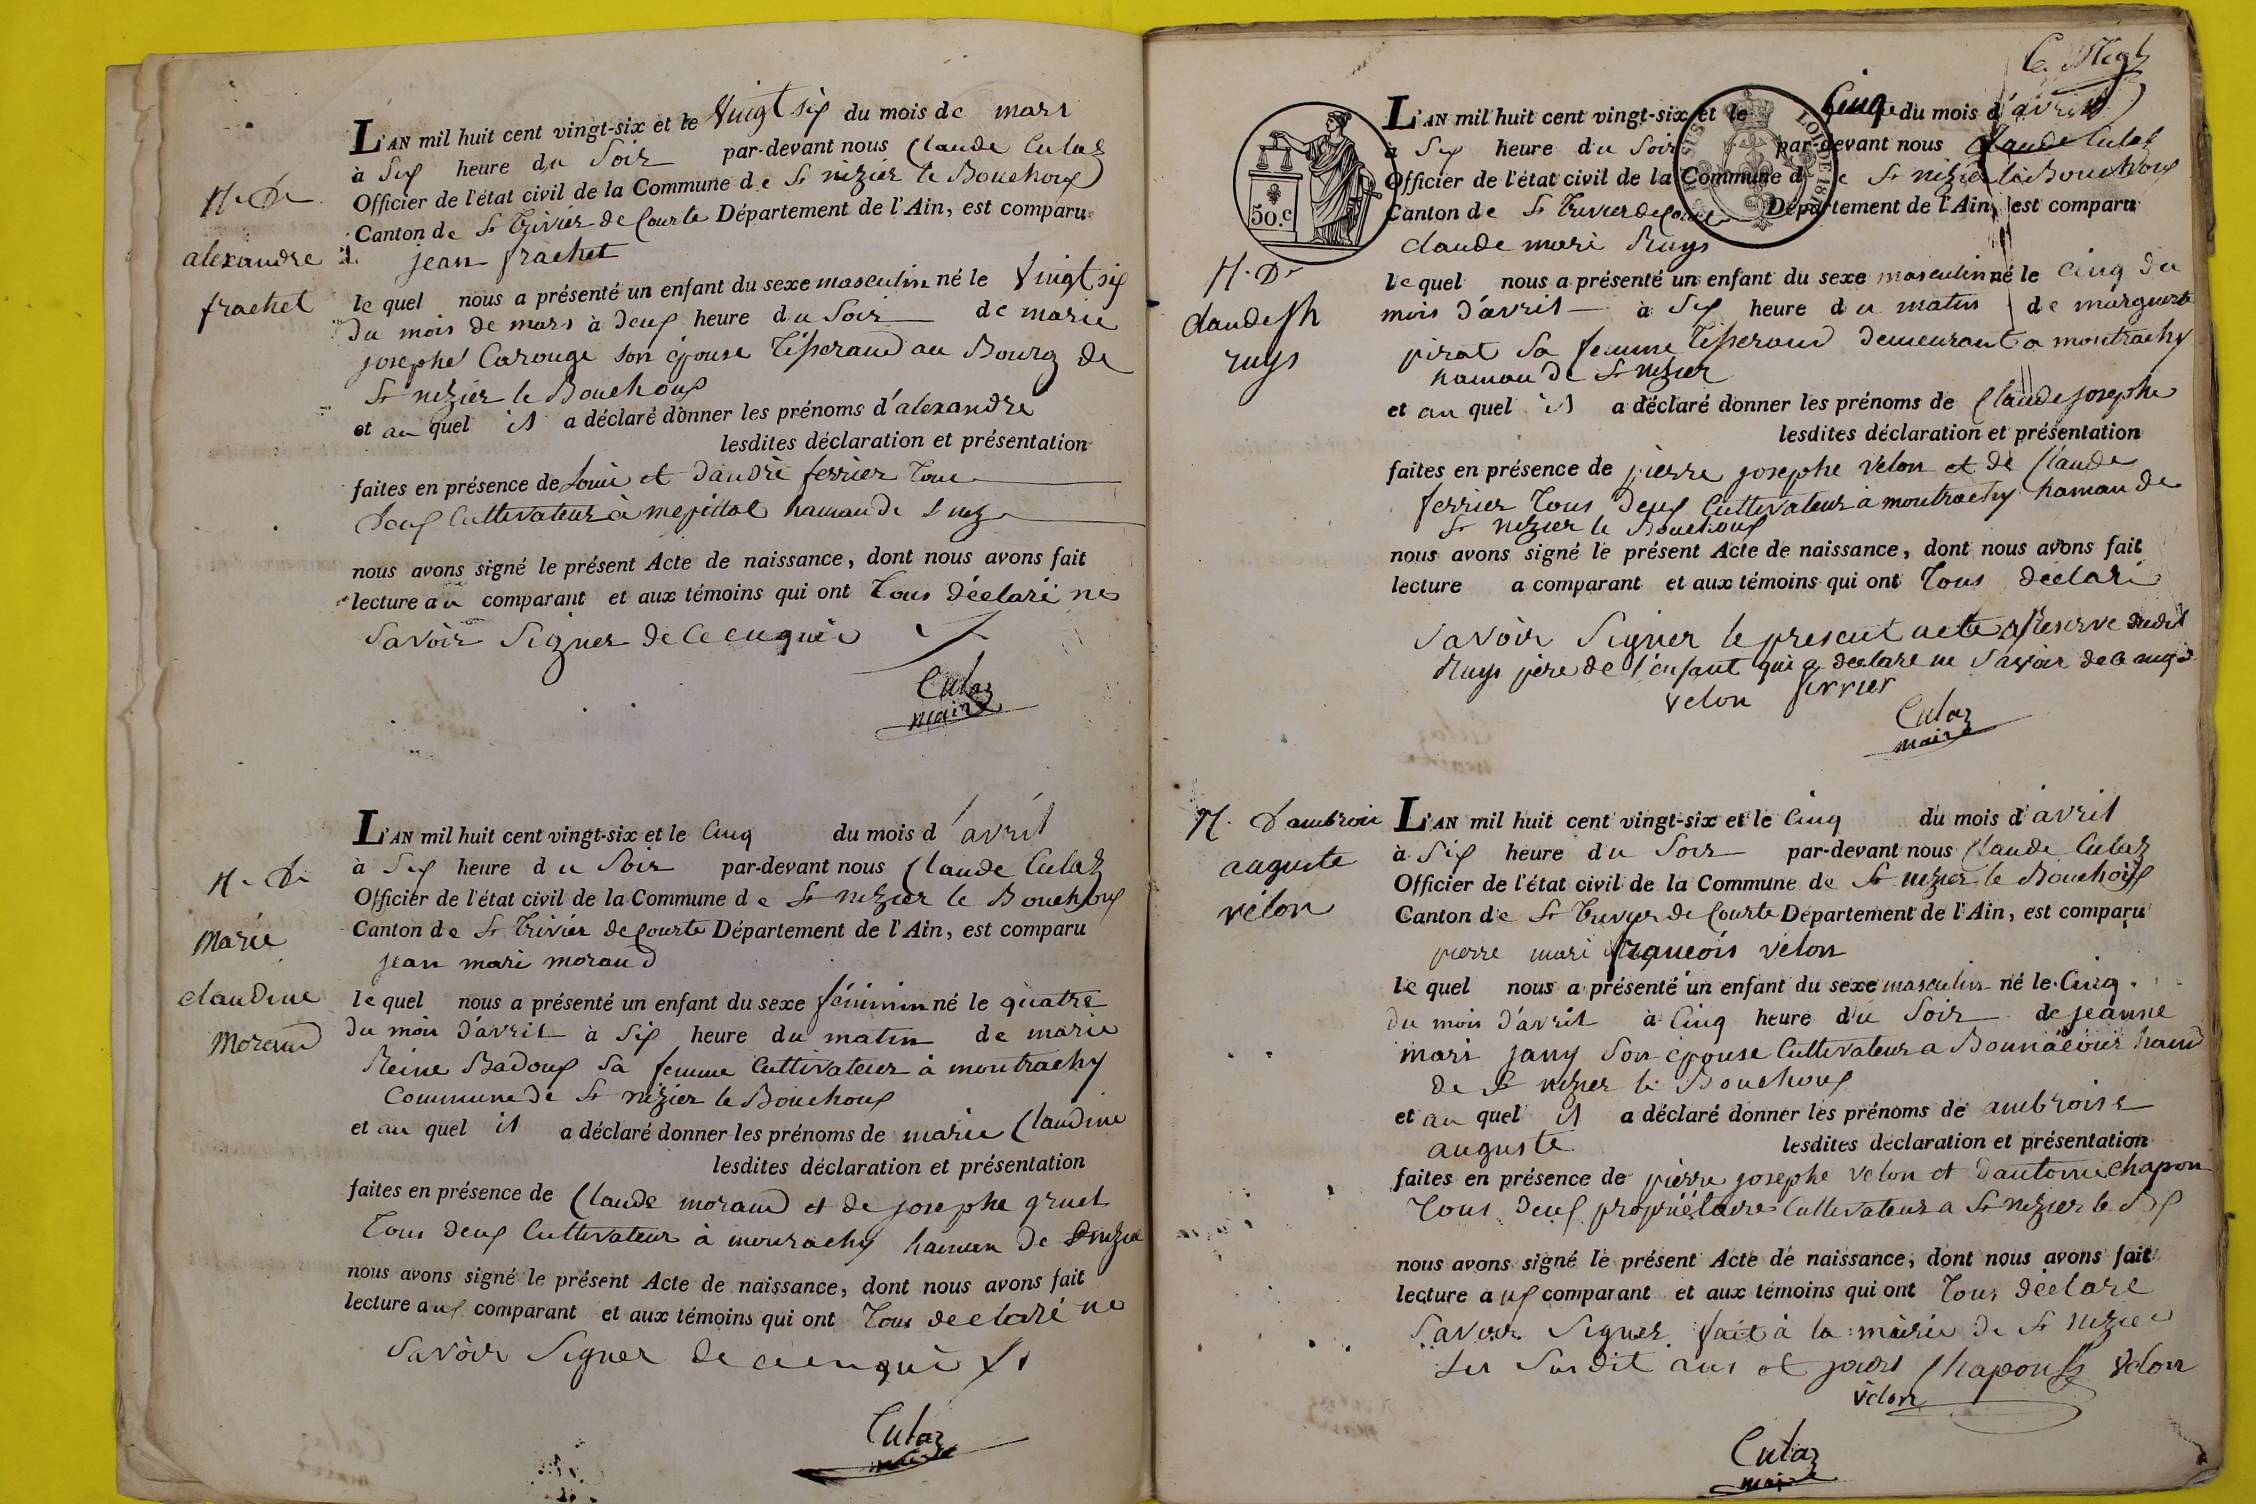 N. De
alexandre
frachet
L'AN mil huit cent vingt-six et le Vingt six du mois de mars
à Six heure du Soir par-devant nous Claude Culaz
Officier de l'état civil de la Commune de St nizier le Bouchoux
Canton de St Trivier de Courte Département de l'Ain, est comparu
jean frachet
le quel nous a présenté un enfant du sexe masculin né le Vingt six
du mois de mars à deux heure du Soir de marie
josephe Carouge son épouse Tisserand au Bourg de
St nizier le Bouchoux
et au quel il a déclaré donner les prénoms d'alexandre
lesdites déclaration et présentation
faites en présence de Louis et d'andré ferrier Tous
deux Cultivateur à mepillat hamau de
nous avons signé le présent Acte de naissance, dont nous avons fait
lecture au comparant et aux témoins qui ont Tous déclaré ne
Savoir Signer de ce enquis
Culaz
maire
N. De
Marie
claudine
Morand
L'AN mil huit cent vingt-six et le Cinq du mois d'avril
à Six heure du Soir par-devant nous Claude Culaz
Officier de l'état civil de la Commune de St nizier le Bouchoux
Canton de St Trivier de Courte Département de l'Ain, est comparu
jean mari morand
le quel nous a présenté un enfant du sexe féminin né le quatre
du mois d'avril à Six heure du matin de marie
Reine Badoux sa femme Cultivateur à montrachy
Commune de St nizier le Bouchoux
et au quel il a déclaré donner les prénoms de marie Claudine
lesdites déclaration et présentation
faites en présence de Claude morand et de josephe gruel
Tous deux Cultivateur à mourachy hamau de St nizie
nous avons signé le présent Acte de naissance, dont nous avons fait
lecture aux comparant et aux témoins qui ont Tous declaré ne
Savoir Signer de ce enquis
Culaz
maire
50.c
LOI DE 18
N. De
Claude Jh
ruys
L'AN mil huit cent vingt-six et le Cinq du mois d'avril
à Six heure du Soir par-devant nous Claude Culaz
Officier de l'état civil de la Commune de St nizier le Bouchoux
Canton de St Trivier de Courte Département de l'Ain, est comparu
Claude mari Ruys
le quel nous a présenté un enfant du sexe masculin né le Cinq du
mois d'avril à Six heure du matin de marguerite
pirat sa femme Tisserand demeurant a montrachy
hamau de St nizier
et au quel il a déclaré donner les prénoms de Claude josephe
lesdites déclaration et présentation
faites en présence de pierre josephe velon et de Claude
ferrier Tous deux Cultivateur a montrachy hamau de
St nizier le Bouchoux
nous avons signé le présent Acte de naissance, dont nous avons fait
lecture a comparant et aux témoins qui ont Tous déclaré
Savoir Signer le present acte a Reserve dudit
Ruys père de l'enfant qui a declaré ne Savoir de ce enquis
velon ferrier
Culaz
maire
N. D'ambroise
auguste
vélon
L'AN mil huit cent vingt-six et le Cinq du mois d'avril
à Six heure du Soir par-devant nous Claude Culaz
Officier de l'état civil de la Commune de St nizier le Bouchoux
Canton de St Trivier de Courte Département de l'Ain, est comparu
pierre mari françois vélon
le quel nous a présenté un enfant du sexe masculin né le Cinq
du mois d'avril à Cinq heure du Soir de jeanne
mari jany Son épouse Cultivateur a Bonnacour
de St nizier le Bouchoux
et au quel il a déclaré donner les prénoms de ambroise
auguste lesdites déclaration et présentation
faites en présence de pierre josephe velon et d'antoine chapon
Tous deux propriétaire Cultivateur a St nizier le Bx
nous avons signé le présent Acte de naissance, dont nous avons fait
lecture aux comparant et aux témoins qui ont Tous déclaré
Savoir Signer fait à la mairie de St nizier
les Susdit ans et jours Chapon velon
vélon
Culaz
maire